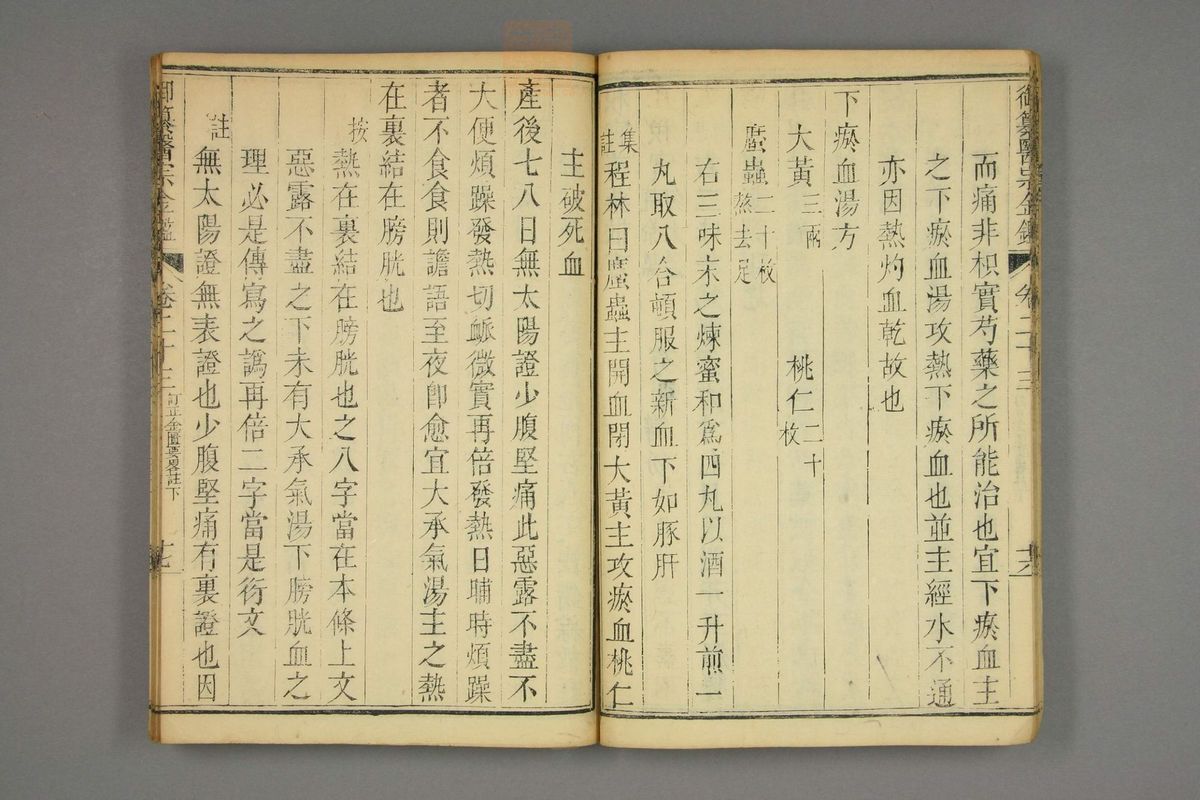 御纂醫宗金鑑 卷二十三 十六
而痛非枳實芍藥之所能治也宜下瘀血主
之下瘀血湯攻熱下瘀血也並主經水不通
亦因熱灼血乾故也
下瘀血湯方
大黃三兩 桃仁二十枚
䗪蟲二十枚熬去足
右三味末之煉蜜和爲四丸以酒一升煎一
丸取八合頓服之新血下如豚肝
集註程林曰䗪蟲主開血閉大黃主攻瘀血桃仁
主破死血
產後七八日無太陽證少腹堅痛此惡露不盡不
大便煩躁發熱切脈微實再倍發熱日晡時煩躁
者不食食則譫語至夜卽愈宜大承氣湯主之熱
在裏結在膀胱也
按熱在裏結在膀胱也之八字當在本條上文
惡露不盡之下未有大承氣湯下膀胱血之
理必是傳寫之譌再倍二字當是衍文
註無太陽證無表證也少腹堅痛有裏證也因
御纂醫宗金鑑 卷二十三 訂正金匱要畧註下 十七